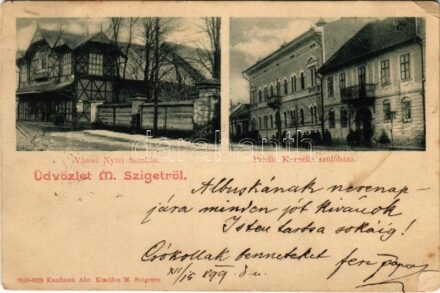 Városi Nyári Színház.
Prielle Kornélia szülőháza.
Üdvözlet M. Szigetről.
Albuskának nevenap-
jára minden jót kivánok
Isten tartsa sokáig!
Csókollak benneteket feri
XII/15 899. d. u.
Kaufman Abr. Kiadása M. Sziget.